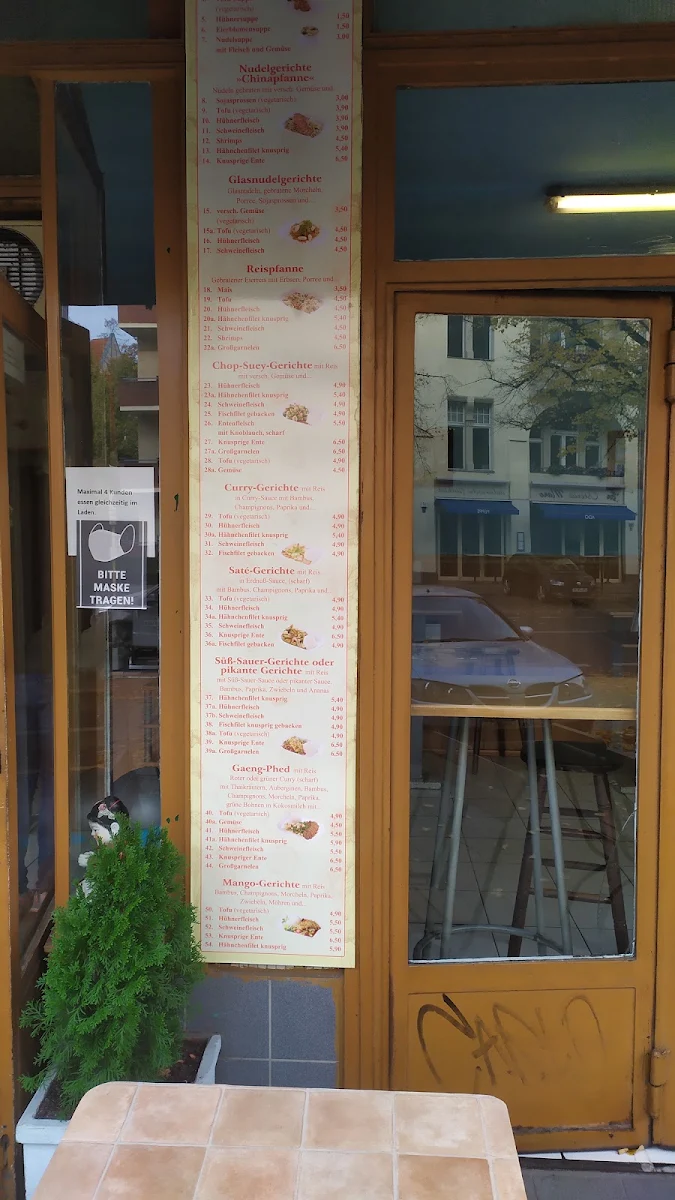 (vegetarisch)
5. Hühnersuppe 1,50
7. Nudelsuppe
mit Fleisch und Gemüse
Nudelgerichte
»Chinapfanne«
8. Sojasprossen (vegetarisch) 3,00
9. Tofu (vegetarisch) 3,90
10. Hühnerfleisch 3,90
11. Schweinefleisch 3,90
12. Shrimps 4,50
13. Hähnchenfilet knusprig 5,40
14. Knusprige Ente 6,50
Glasnudelgerichte
Glasnudeln, gebraten, Morcheln,
Porree, Sojasprossen und...
15. versch. Gemüse 3,50
(vegetarisch)
15a. Tofu (vegetarisch) 4,50
16. Hühnerfleisch 4,50
17. Schweinefleisch 4,50
Reispfanne
Gebratener Eierreis mit Erbsen, Porree und...
18. Mais 3,50
19. Tofu 4,50
20. Hühnerfleisch 4,50
20a. Hähnchenfilet knusprig 5,40
21. Schweinefleisch 4,50
22. Shrimps 5,50
22a. Großgarnelen 6,50
Chop-Suey-Gerichte mit Reis
mit versch. Gemüse und...
23. Hühnerfleisch 4,90
23a. Hähnchenfilet knusprig 5,40
24. Schweinefleisch 4,90
25. Fischfilet gebacken 4,90
26. Entenfleisch 5,50
mit Knoblauch, scharf
27. Knusprige Ente 6,50
27a. Großgarnelen 6,50
28. Tofu (vegetarisch) 4,90
28a. Gemüse 4,50
Curry-Gerichte mit Reis
in Curry-Sauce mit Bambus,
Champignons, Paprika und...
29. Tofu (vegetarisch) 4,90
30. Hühnerfleisch 4,90
30a. Hähnchenfilet knusprig 5,40
31. Schweinefleisch 4,90
32. Fischfilet gebacken 4,90
Saté-Gerichte mit Reis
in Erdnuß-Sauce, (scharf)
mit Bambus, Champignons, Paprika und...
33. Tofu (vegetarisch) 4,90
34. Hühnerfleisch 4,90
34a. Hähnchenfilet knusprig 5,40
35. Schweinefleisch 4,90
36. Knusprige Ente 6,50
36a. Fischfilet gebacken 4,90
Süß-Sauer-Gerichte oder
pikante Gerichte mit Reis
mit Süß-Sauer-Sauce oder pikanter Sauce,
Bambus, Paprika, Zwiebeln und Ananas
37. Hähnchenfilet knusprig 5,40
37a. Hühnerfleisch 4,90
37b. Schweinefleisch 4,90
38. Fischfilet knusprig gebacken 4,90
38a. Tofu (vegetarisch) 4,90
39. Knusprige Ente 6,50
39a. Großgarnelen 6,50
Gaeng-Phed mit Reis
Roter oder grüner Curry (scharf)
mit Thaikräutern, Auberginen, Bambus,
Champignons, Morcheln, Paprika,
grüne Bohnen in Kokosmilch mit...
40. Tofu (vegetarisch) 4,90
40a. Gemüse 4,50
41. Hühnerfleisch 5,50
41a. Hähnchenfilet knusprig 5,90
42. Schweinefleisch 5,50
43. Knuspriger Ente 6,50
44. Großgarnelen 6,50
Mango-Gerichte mit Reis
Bambus, Champignons, Morcheln, Paprika,
Zwiebeln, Möhren und...
50. Tofu (vegetarisch) 4,90
51. Hühnerfleisch 5,50
52. Schweinefleisch 5,50
53. Knusprige Ente 6,50
54. Hähnchenfilet knusprig 5,90
Maximal 4 Kunden
essen gleichzeitig im
Laden.
BITTE
MASKE
TRAGEN!